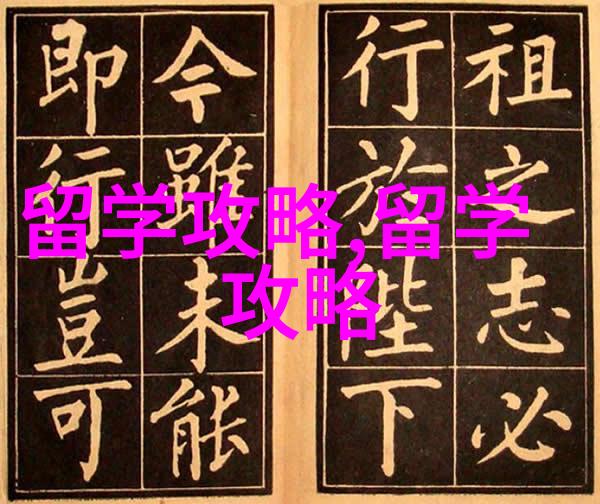 祖之志必
行於陛下
今雖未能
即行豈可
留学攻略,留学
攻略